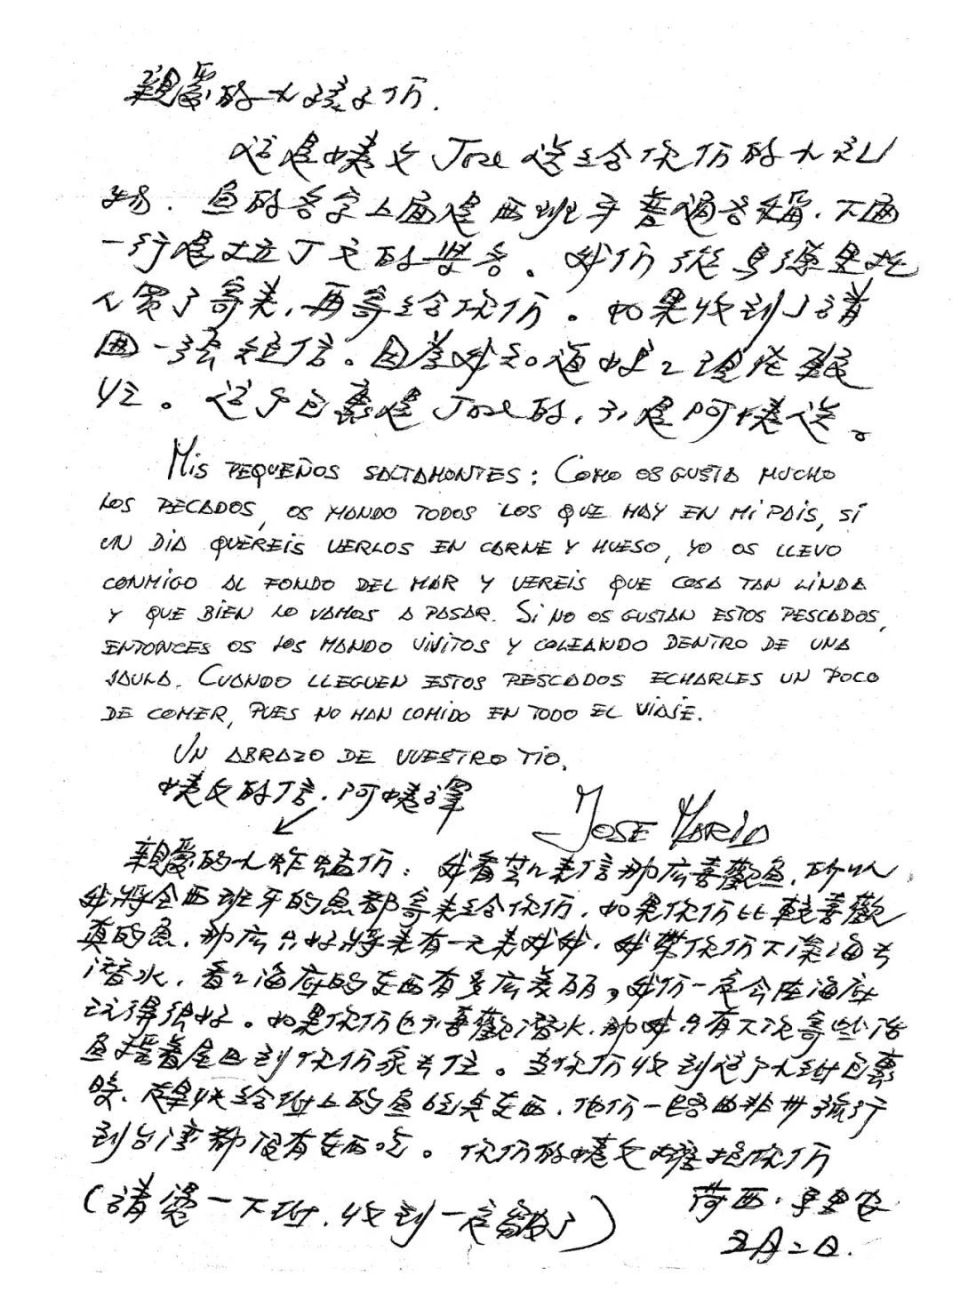 親愛的小孩子们.
這是姨父 Jose 送给你们的大礼
物．魚的名字上面是西班牙普通名稱．下面
一行是拉丁文的學名。我们從馬德里托
人買了寄來，再寄给你们。如果收到了請
回一張短信。因為我知道中文處理從
這个包裹是 Jose 的，不是阿姨送。
MIS PEQUEÑOS SALTAMONTES: COMO OS GUSTA MUCHO
LOS PECADOS, OS MANDO TODOS LOS QUE HAY EN MI PAIS, SI
UN DIA QUEREIS VERLOS EN CARNE Y HUESO, YO OS LLEVO
CONMIGO AL FONDO DEL MAR Y VEREIS QUE COSA TAN LINDA
Y QUE BIEN LO VAMOS A PASAR. SI NO OS GUSTAN ESTOS PESCADOS,
ENTONCES OS LOS MANDO VIVITOS Y COLEANDO DENTRO DE UNA
JAULA. CUANDO LLEGUEN ESTOS PESCADOS ECHARLES UN POCO
DE COMER, PUES NO HAN COMIDO EN TODO EL VIAJE.
UN ABRAZO DE VUESTRO TIO.
姨父的信．阿姨譯
JOSE MARIA
親愛的小蚱蜢们：我看裡來信那広喜歡魚．所以
我將全西班牙的魚都寄來给你们．如果你们比較喜歡
真的魚，那広只好將來有一天來找我，我帶你们下深海去
潛水，看看海底的东西有多広美丽，我们一定会在海底
玩得很好。如果你们也不喜歡潛水，那我只有下次寄些活
魚搖着尾巴到你们家去住。当你们收到這个大班包裹
時．趕快给班上的魚吃点东西．他们一路由非州旅行
到台灣都沒有东西吃。你们的姨父擁抱你们
(請燙一下班．收到一定皺了) 荷西·馬里安
五月二日.